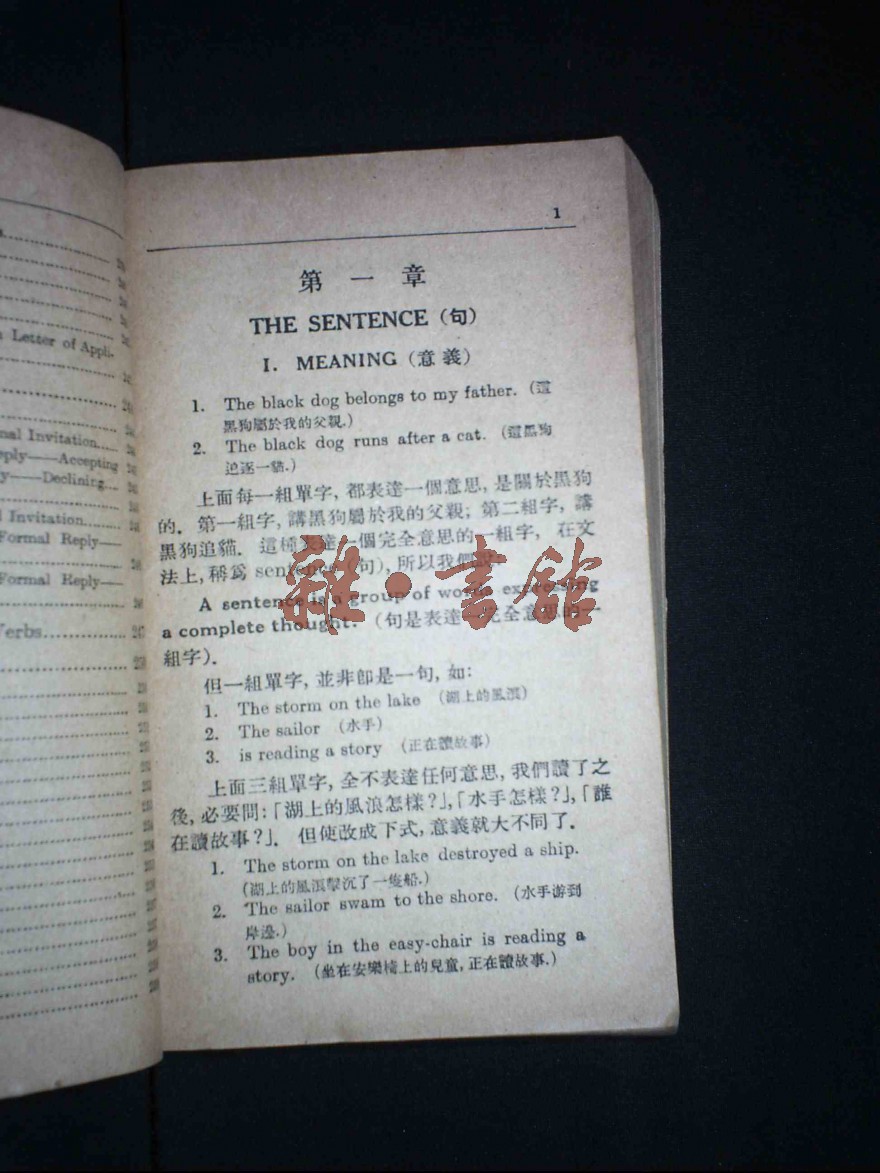 n Letter of Appli-
nal Invitation
eply——Accepting
y——Declining
l Invitation
Formal Reply—
Formal Reply—
Verbs 247
1
第一章
THE SENTENCE (句)
I. MEANING (意義)
1. The black dog belongs to my father. (這
黑狗屬於我的父親.)
2. The black dog runs after a cat. (這黑狗
追逐一貓.)
上面每一組單字, 都表達一個意思, 是關於黑狗
的. 第一組字, 講黑狗屬於我的父親; 第二組字, 講
黑狗追貓. 這種表達一個完全意思的一組字, 在文
法上, 稱爲 sentence (句), 所以我們說:
A sentence is a group of words expressing
a complete thought. (句是表達一完全意思的一
組字).
但一組單字, 並非卽是一句, 如:
1. The storm on the lake (湖上的風浪)
2. The sailor (水手)
3. is reading a story (正在讀故事)
上面三組單字, 全不表達任何意思, 我們讀了之
後, 必要問:「湖上的風浪怎樣?」,「水手怎樣?」,「誰
在讀故事?」. 但使改成下式, 意義就大不同了.
1. The storm on the lake destroyed a ship.
(湖上的風浪擊沉了一隻船.)
2. The sailor swam to the shore. (水手游到
岸邊.)
3. The boy in the easy-chair is reading a
story. (坐在安樂椅上的兒童, 正在讀故事.)
雜·書館